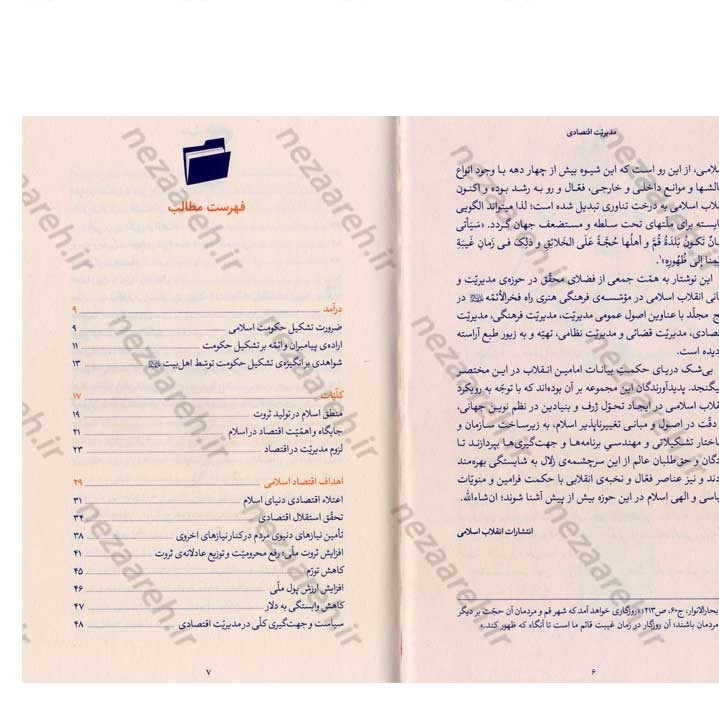 مدیریّت اقتصادی
اسلامی، از این رو است که این شیوه بیش از چهار دهه با وجود انواع
چالشها و موانع داخلی و خارجی، فعّال و رو به رشد بوده و اکنون
انقلاب اسلامی به درخت تناوری تبدیل شده است؛ لذا میتواند الگویی
شایسته برای ملّتهای تحت سلطه و مستضعف جهان گردد. «سَیَأتی
زَمانٌ تَکونُ بَلدَةُ قُمَّ وَ اَهلُها حُجَّةً عَلَی الخَلائِقِ وَ ذٰلِکَ فی زَمانِ غَیبَةِ
قائِمِنا اِلی ظُهُورِه»۱.
این نوشتار به همّت جمعی از فضلای محقّق در حوزه‌ی مدیریّت و
مبانی انقلاب اسلامی در مؤسّسه‌ی فرهنگی هنری راه فخرالأئمّه در
پنج مجلّد با عناوین اصول عمومی مدیریّت، مدیریّت فرهنگی، مدیریّت
اقتصادی، مدیریّت قضائی و مدیریّت نظامی، تهیّه و به زیور طبع آراسته
گردیده است.
بی‌شک دریای حکمت بیانات امامین انقلاب در این مختصر
نمیگنجد. پدیدآورندگان این مجموعه بر آن بوده‌اند که با توجّه به رویکرد
انقلاب اسلامی در ایجاد تحوّل ژرف و بنیادین در نظم نوین جهانی،
دقّت در اصول و مبانی تغییرناپذیر اسلام، به زیرساخت سازمان و
ساختار تشکیلاتی و مهندسی برنامه‌ها و جهت‌گیری‌ها بپردازند تا
دگان و حق‌طلبان عالم از این سرچشمه‌ی زلال به شایستگی بهره‌مند
گردند و نیز عناصر فعّال و نخبه‌ی انقلابی با حکمت فرامین و منویّات
سیاسی و الهی اسلام در این حوزه بیش از پیش آشنا شوند؛ ان‌شاءالله.
انتشارات انقلاب اسلامی
بحارالانوار، ج۶۰، ص۲۱۳؛ «روزگاری خواهد آمد که شهر قم و مردمان آن حجّت بر دیگر
مردمان باشند؛ آن روزگار در زمان غیبت قائم ما است تا آنگاه که ظهور کند.»
۶
فهرست مطالب
درآمد ۹
ضرورت تشکیل حکومت اسلامی ۹
اراده‌ی پیامبران و ائمّه بر تشکیل حکومت ۱۱
شواهدی بر انگیزه‌ی تشکیل حکومت توسّط اهل‌بیت ۱۳
کلّیّات ۱۷
منطق اسلام در تولید ثروت ۱۹
جایگاه و اهمّیّت اقتصاد در اسلام ۲۱
لزوم مدیریّت در اقتصاد ۲۳
اهداف اقتصاد اسلامی ۲۹
اعتلاء اقتصادی دنیای اسلام ۳۱
تحقّق استقلال اقتصادی ۳۴
تأمین نیازهای دنیوی مردم در کنار نیازهای اخروی ۳۸
افزایش ثروت ملّی؛ رفع محرومیّت و توزیع عادلانه‌ی ثروت ۴۱
کاهش تورّم ۴۵
افزایش ارزش پول ملّی ۴۶
کاهش وابستگی به دلار ۴۷
سیاست و جهت‌گیری کلّی در مدیریّت اقتصادی ۴۸
۷
nezaareh.ir